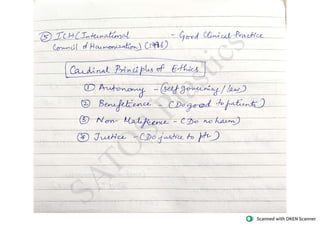 ⑧ ICH (International - Good Clinical Practice
Council of Harmonisation) (1996)
Cardinal Principles of Ethics
① Autonomy - (self governing / law)
② Benefetience - (Do good to patients)
③ Non-Malifience - (Do no harm)
④ Justice - (Do justice to pts)
Scanned with OKEN Scanner